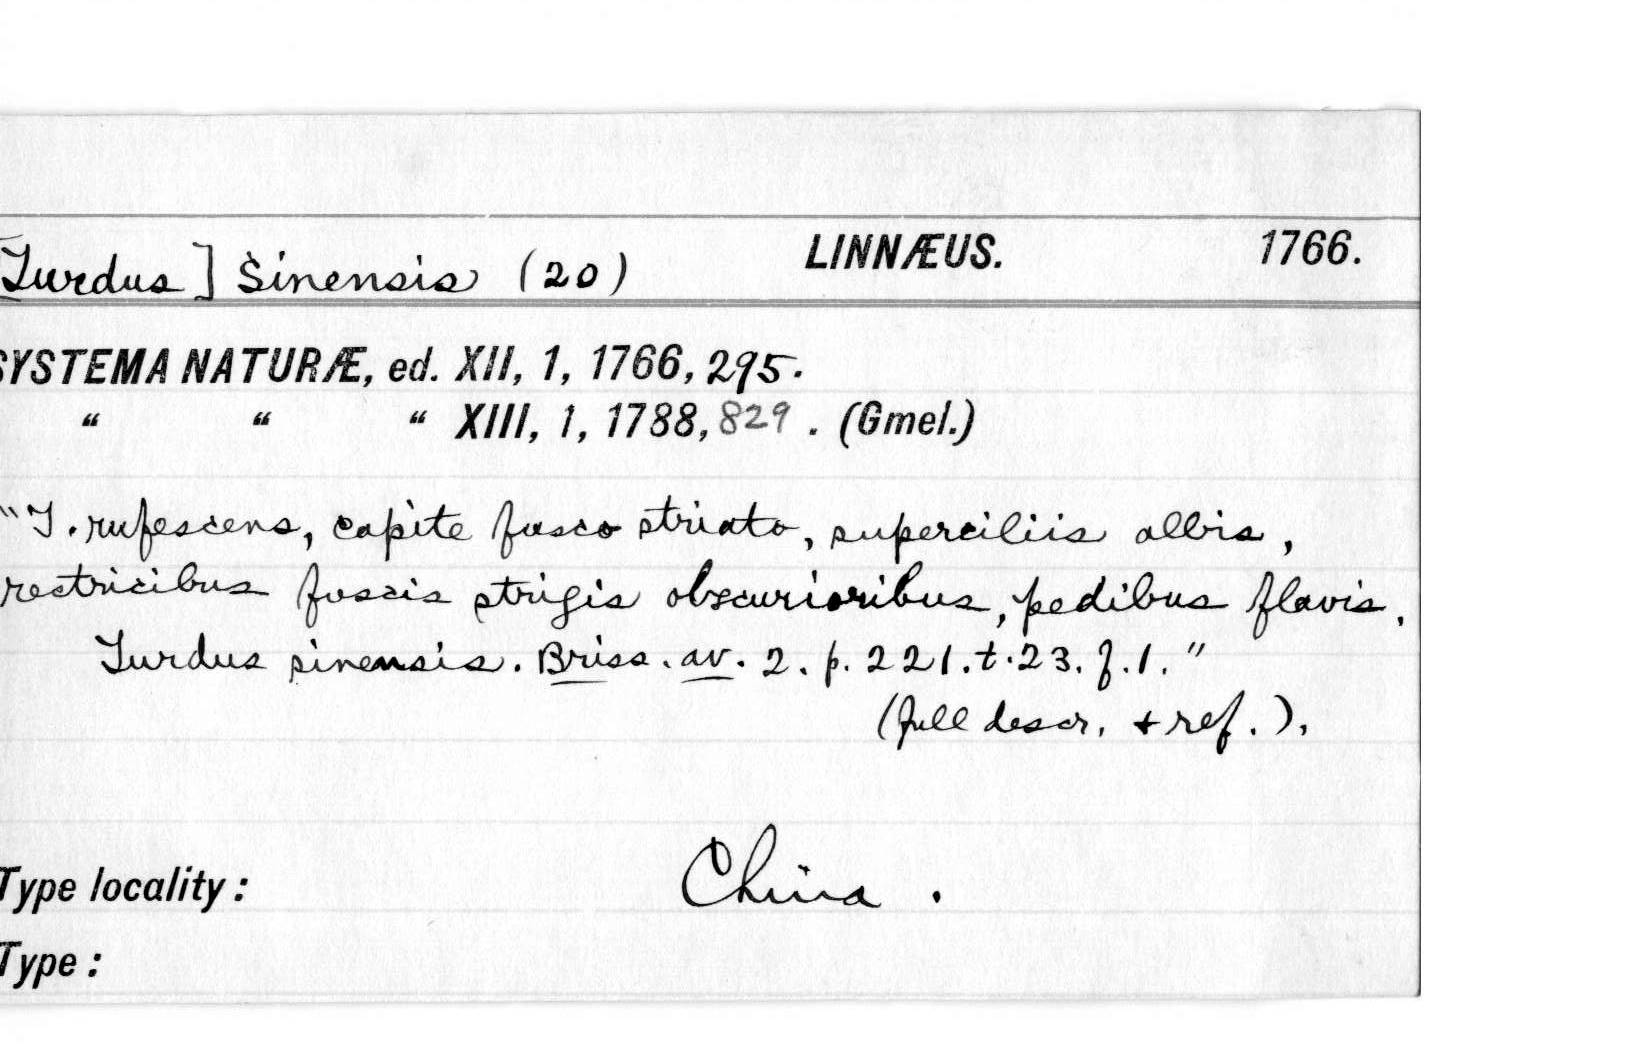 [Turdus] sinensis (20) LINNÆUS. 1766.
SYSTEMA NATURÆ, ed. XII, 1, 1766, 295.
“ “ “ XIII, 1, 1788, 829 . (Gmel.)
"T. rufescens, capite fusco striato, superciliis albis,
rectricibus fuscis strigis obscurioribus, pedibus flavis.
Turdus sinensis. Briss. av. 2. p. 221. t. 23. f. 1."
(full descr. + ref.).
Type locality: China.
Type: